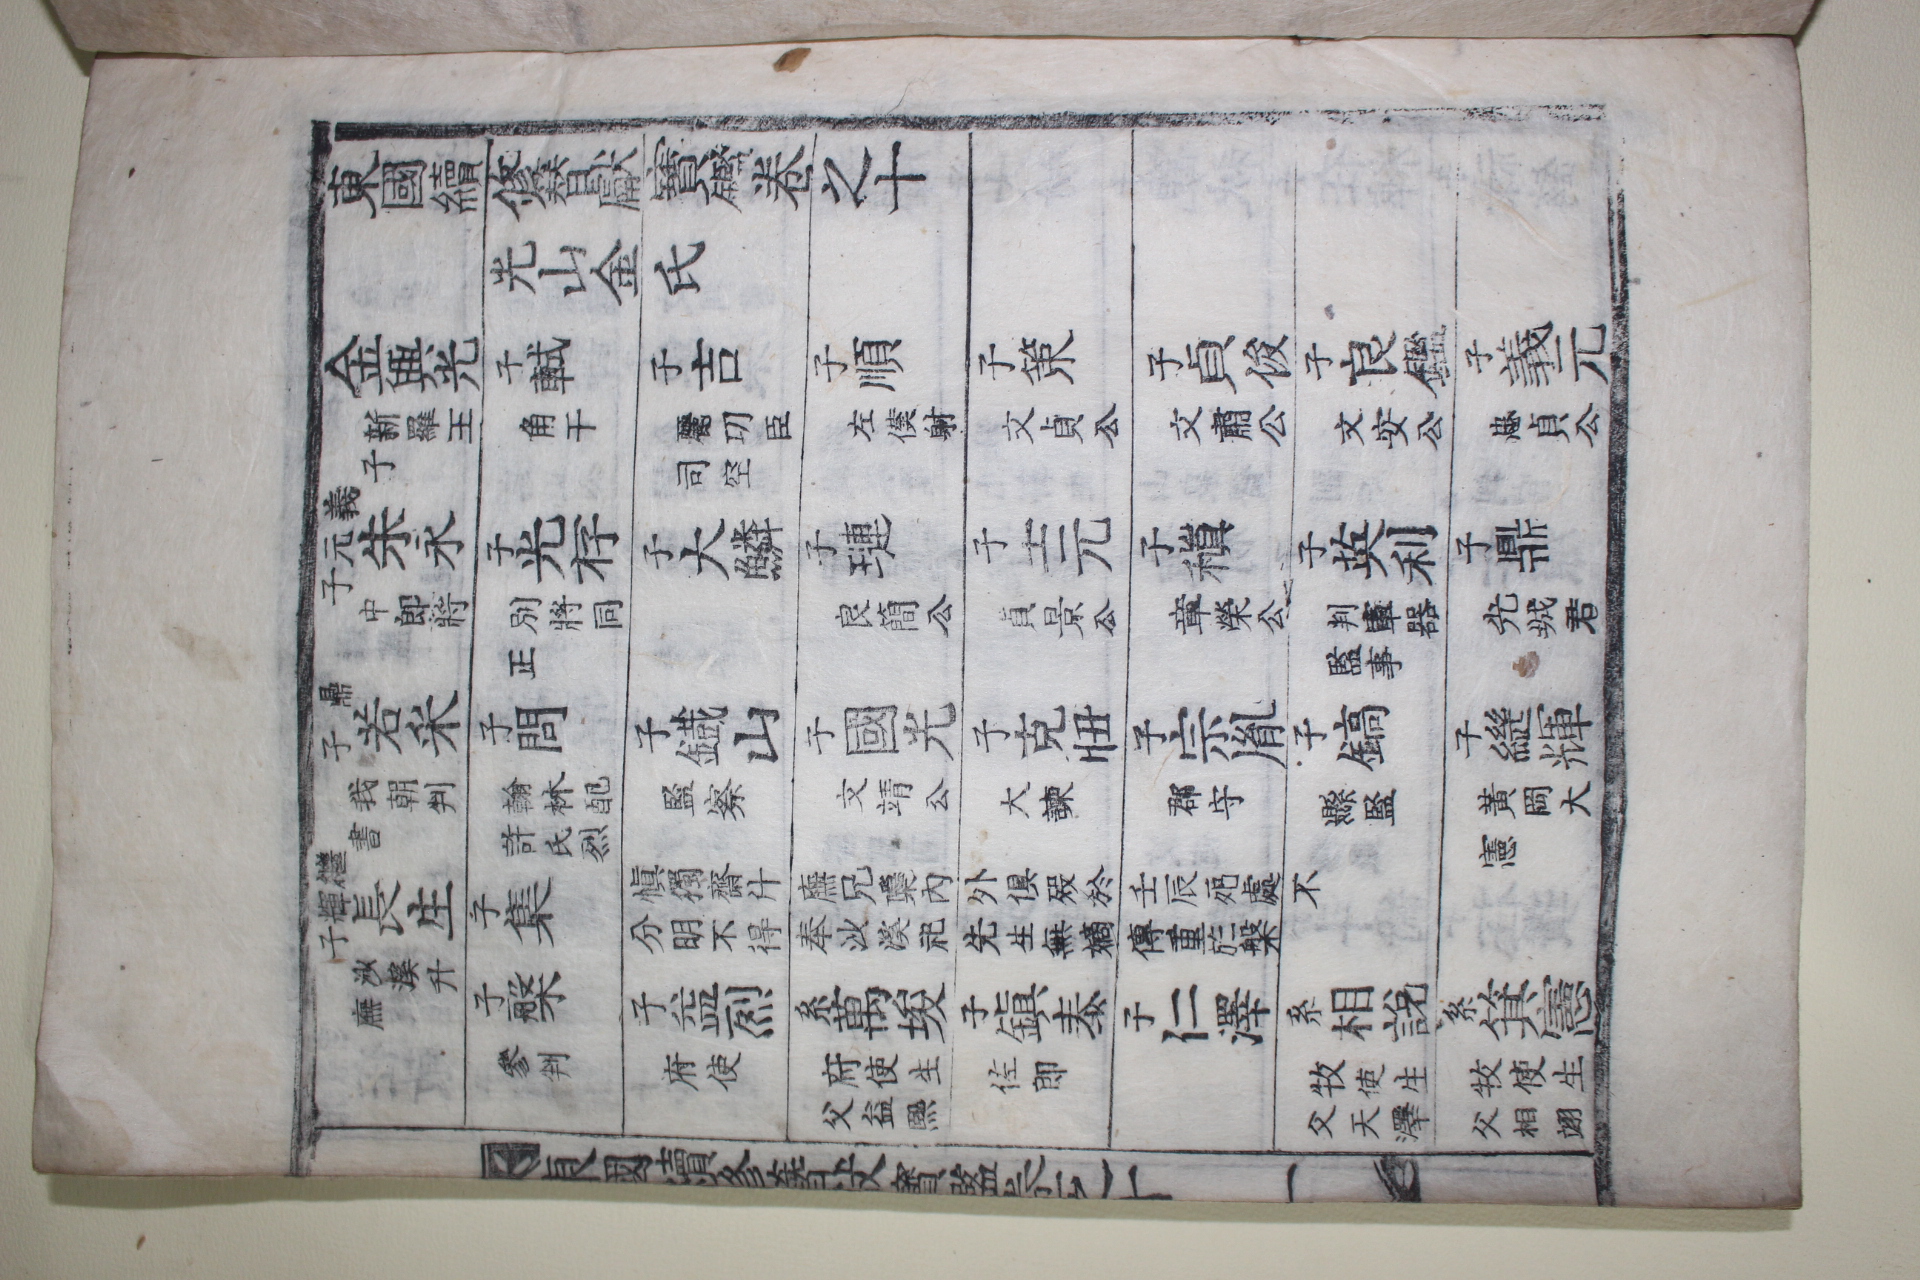 東國續修簪獻寶鑑卷之十
光山金氏
金興光
新羅王
子
子軾
角干
子吉
麗功臣
司空
子順
左僕射
子策
文貞公
子貞俊
文肅公
子良鑑
文安公
子義元
忠貞公
義元子朱永
中郎將
子光存
別將同
正
子大鱗
子璉
良簡公
子士元
貞景公
子稹
章榮公
子英利
判軍器
監事
子鼎
光城君
鼎子若采
我朝判
書
子問
翰林配
許氏烈
子鐵山
監察
子國光
文靖公
子克忸
大諫
子宗胤
郡守
子鎬
縣監
子繼輝
黃岡大
憲
繼輝子長生
沙溪升
廡
子集
愼獨齋升
廡兄櫽內
外俱歿於
壬辰死處不
分明不得
奉沙溪祀
先生無嫡
傳重於槃
子槃
參判
子益烈
府使
系萬埈
府使生
父益熙
子鎭泰
佐郎
子仁澤
系相說
牧使生
父天澤
系箕憲
牧使生
父相翊
東國續修簪獻寶鑑卷之十
一